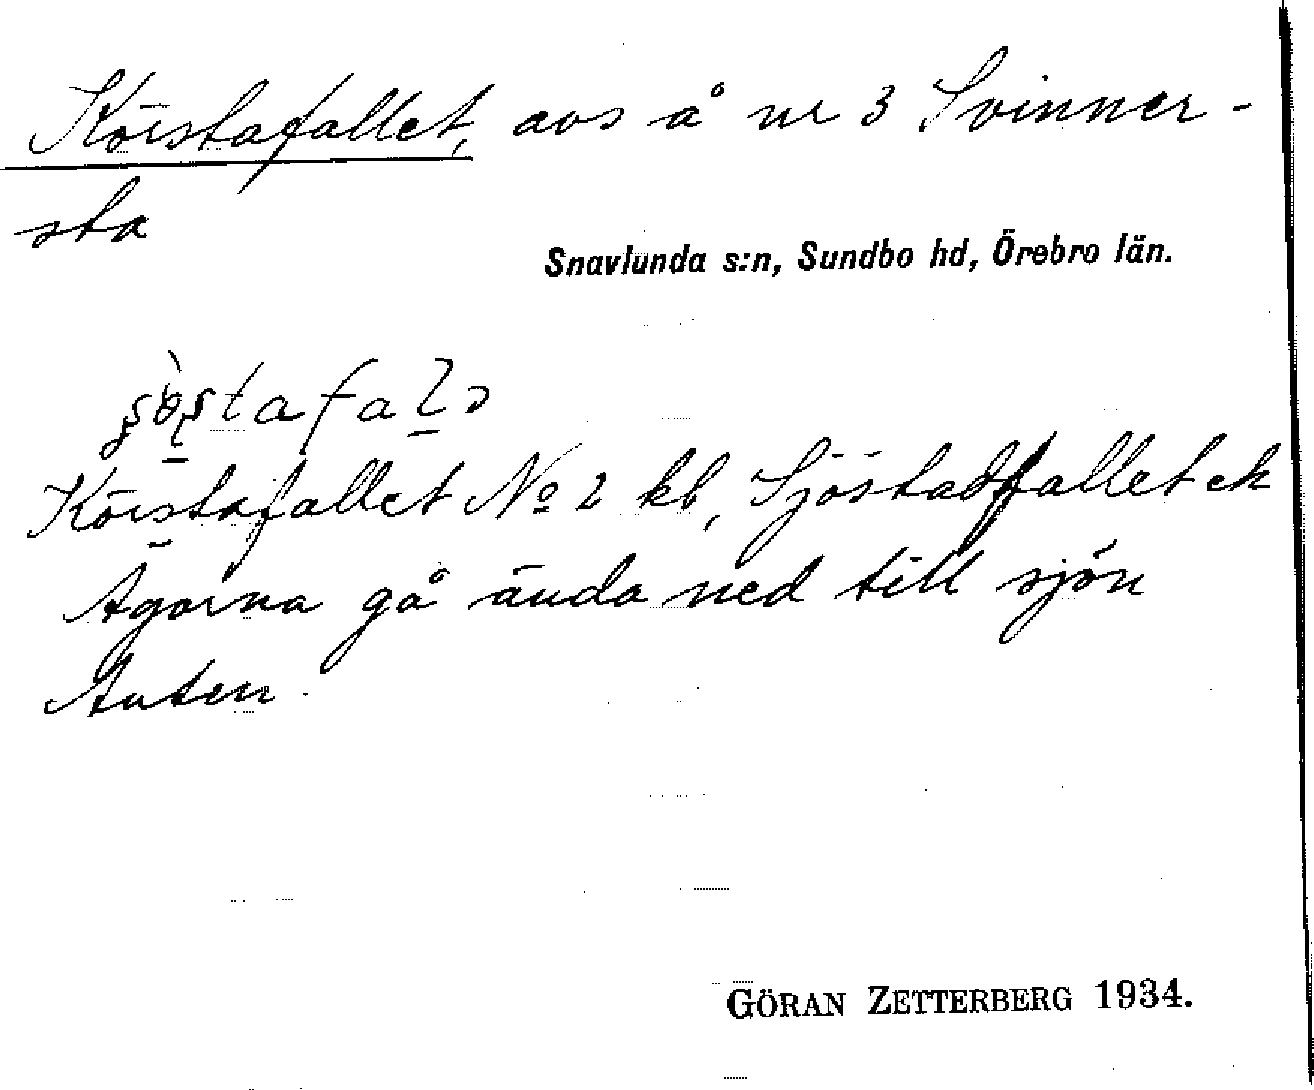 Körstafallet, avs å nr 3 Svinner-
sta
Snavlunda s:n, Sundbo hd, Örebro län.
Körstafallet No 2 kb, Sjöstadfallet ek
Ägorna gå ända ned till sjön
Åmten.
GÖRAN ZETTERBERG 1934.